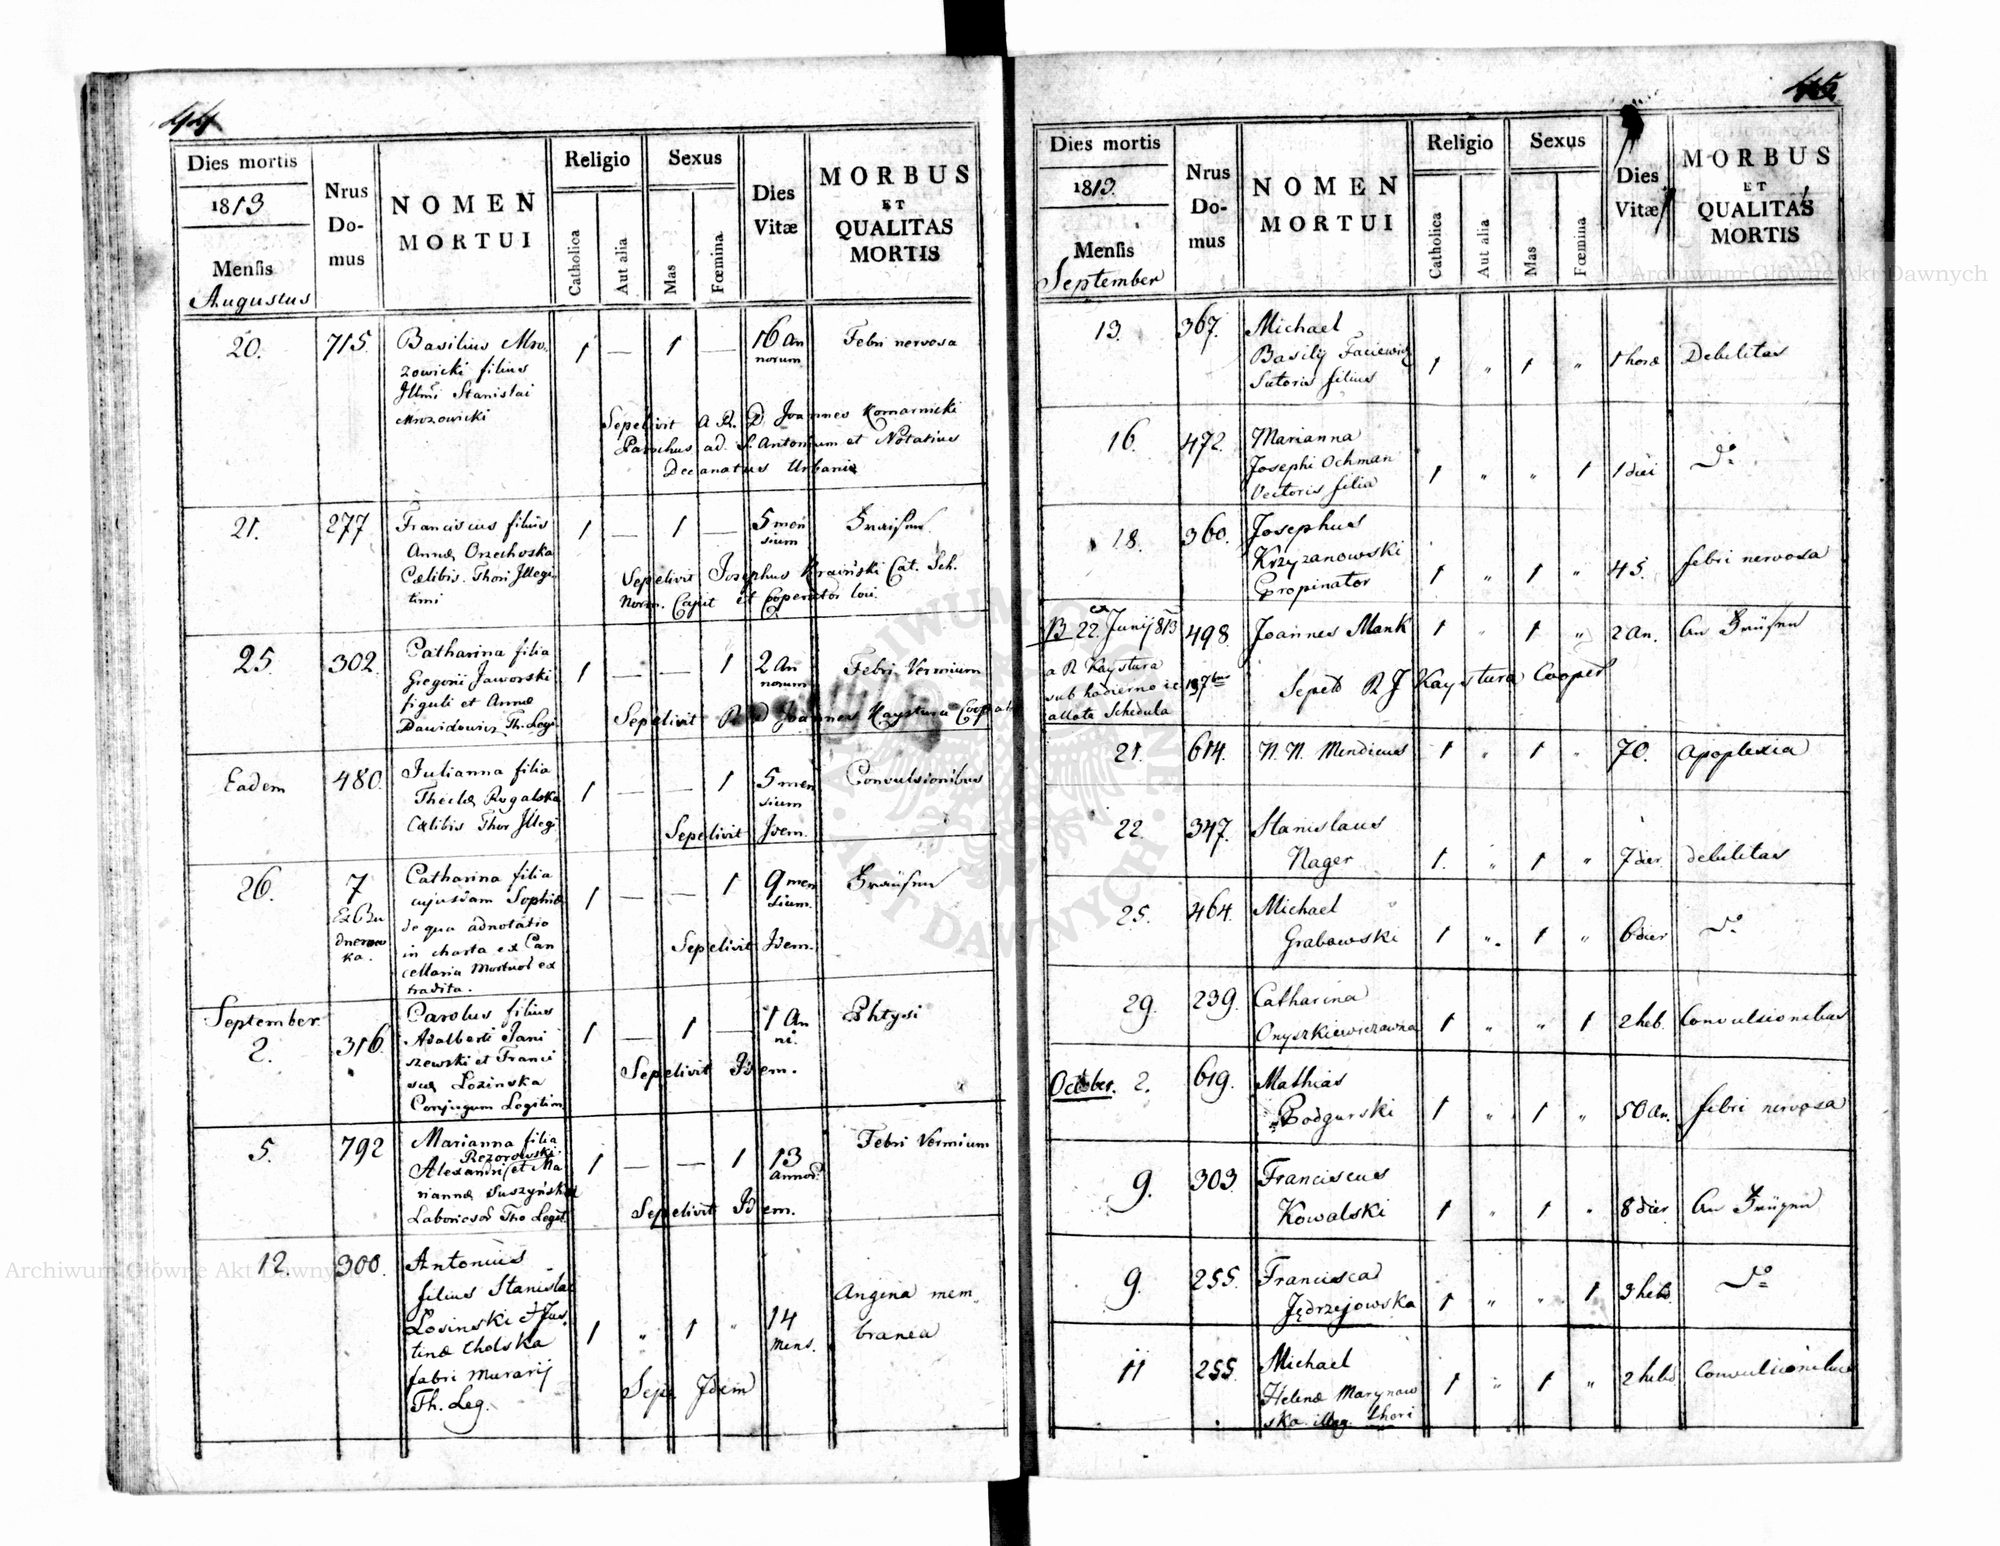 44
Dies mortis
1813
Mensis
Augustus
Nrus
Do-
mus
NOMEN
MORTUI
Religio
Catholica
Aut alia
Sexus
Mas
Fœmina
Dies
Vitæ
MORBUS
ET
QUALITAS
MORTIS
20. 715. Basilius Mro- 1 — 1 — 16 An Febri nervosa
zowicki filius norum
Illmi Stanislai
Mrozowicki
Sepelivit A. R. D. Joannes Komarnicki
Parochus ad S. Antonium et Notarius
Decanatus Urbani
21. 277 Franciscus filius 1 — 1 — 5 men
Annæ Orzechoska sium
Cælibis. Thori Illegi
timi
Sepelivit Josephus Kraiński Cat. Sch.
Norm. Caput et Cooperator loci.
25 302 Catharina filia 1 — — 1 2 An Febri Vermium
Gregorii Jaworski norum
figuli et Annæ
Dawidowicz Th. Legi.
Sepelivit R D Joannes Kaystura Cooperat
Eadem 480. Julianna filia 1 — — 1 5 men Convulsionibus
Theclæ Rogalska sium
Cælibis Thor Illegi
Sepelivit Idem.
26. 7 Catharina filia 1 — — 1 9 men
cujusdam Sophiæ sium.
de qua adnotatio
in charta ex Can
cellaria Mortuor ex
tradita.
Sepelivit Idem.
September.
2. 316. Carolus filius 1 — 1 — 1 An Phtysi
Adalberti Jani ni.
szewski et Franci
scæ Lozinska
Conjugum Legitim
Sepelivit Idem.
5. 792 Marianna filia 1 — — 1 13 Febri Vermium
Rezorowski
Alexandri et Ma Annor.
riannæ Suszyńska
Laboricsor Tho Legit.
Sepelivit Idem.
12. 300. Antonius 1 " 1 " 14 Angina mem
filius Stanislai mens. branea
Losinski et Jus
tinæ Cholska
fabri Murarij
Th. Leg.
Sepe Idem
45.
Dies mortis
1813.
Mensis
September
Nrus
Do-
mus
NOMEN
MORTUI
Religio
Catholica
Aut alia
Sexus
Mas
Fœmina
Dies
Vitæ
MORBUS
ET
QUALITAS
MORTIS
13. 367. Michael
Basilij Faciewicz 1 " 1 " 1 horæ Debilitas
Sutoris filius
16. 472. Marianna
Josephi Ochman 1 " " 1 1 diei do
Vectoris filia
18. 360. Josephus
Krzyzanowski 1 " 1 " 45. febri nervosa
Propinator
22. Junij 813 498 Joannes Mank 1 " 1 " 2 An.
a R Kaystura
sub hodierno
allata Schedula
Sepelt R J Kaystura Cooper
21. 614. N. N. Mendicus 1 " 1 " 70. apoplexia
22. 347. Stanislaus
Nager 1. " 1 " 7 dier debilitas
25. 464. Michael
Grabowski 1 " 1 " 6 dier do
29. 239. Catharina
Onyszkiewiczowna 1 " " 1 2 heb. Convulsionibus
October. 2. 619. Mathias
Podgurski 1 " 1 " 50 an. febri nervosa
9. 303. Franciscus
Kowalski 1 " 1 " 8 dier
9. 255. Francisca
Jędrzejowska 1 " " 1 3 hebd. do
11 255. Michael
Helenæ Marynow 1 " 1 " 2 hebd Convulsionibus
ska illeg. thori
Archiwum Główne Akt Dawnych
Archiwum Główne Akt Dawnych
ARCHIWUM GŁÓWNE AKT DAWNYCH